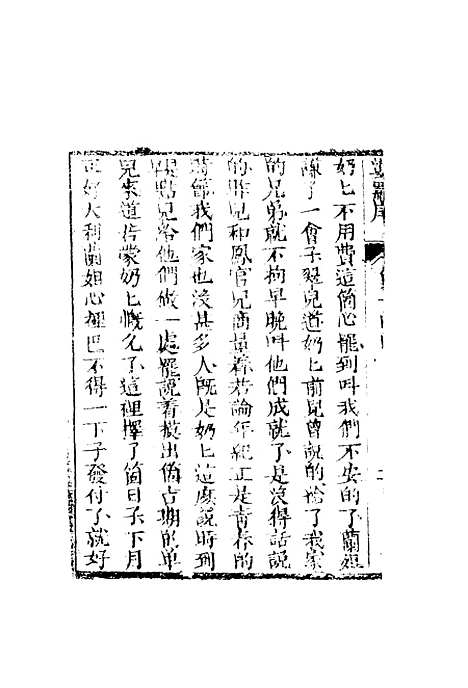 奶匕不用費這個心罷到叫我們不安的了蘭姐
謙了一會子翠兒道奶匕前兒曾說的給了我家
的兄弟就不拘早晚叫他們成就了是沒得話說
的昨兒和鳳官兒商量着若論年紀正是青春的
時節我們家也沒甚多人旣是奶匕這麽說時到
揀點兒咨他們做一處罷說着摸出個吉期的單
兒來道若蒙奶匕慨允了這裡擇了個日子下月
初好大利蘭姐心裡巴不得一下子發付了就好